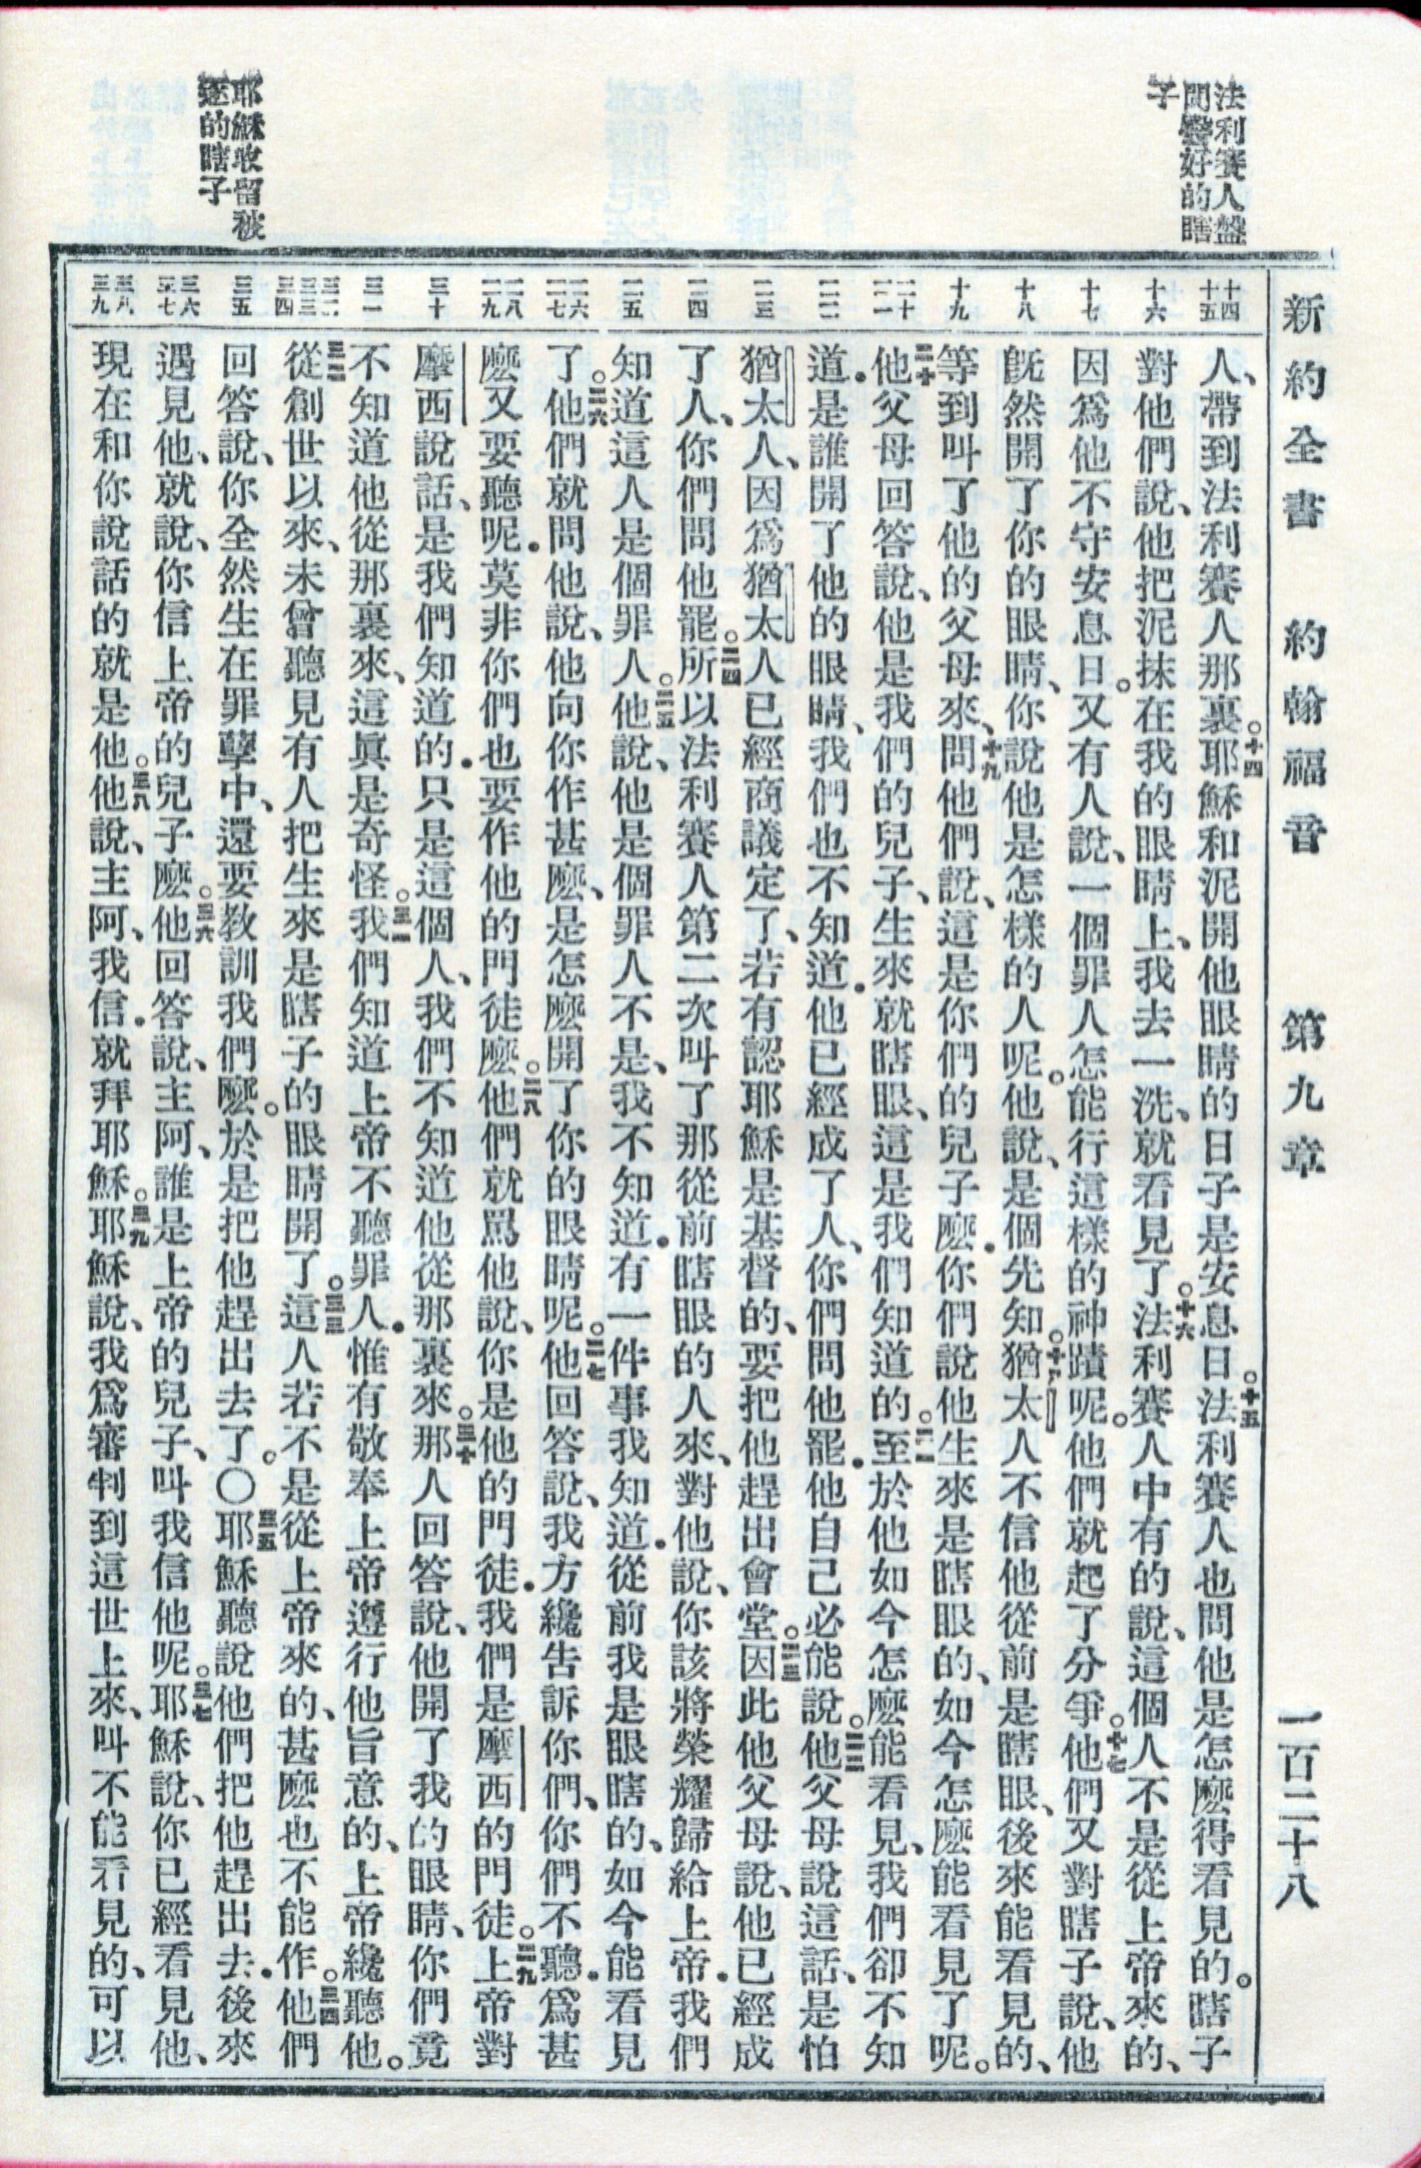 新約全書　約翰福音　第九章　一百二十八
法利賽人盤
問醫好的瞎
子
耶穌收留被
逐的瞎子
十四
十五
十六
十七
十八
十九
二十
二一
二二
二三
二四
二五
二六
二七
二八
二九
三十
三一
三二
三三
三四
三五
三六
三七
三八
三九
人、帶到法利賽人那裏。十四耶穌和泥開他眼睛的日子是安息日。十五法利賽人也問他是怎麼得看見的。瞎子
對他們說、他把泥抹在我的眼睛上、我去一洗、就看見了。十六法利賽人中有的說、這個人不是從上帝來的、
因爲他不守安息日。又有人說、一個罪人怎能行這樣的神蹟呢。他們就起了分爭。十七他們又對瞎子說、他
旣然開了你的眼睛、你說他是怎樣的人呢。他說、是個先知。十八猶太人不信他從前是瞎眼、後來能看見的、
等到叫了他的父母來、十九問他們說、這是你們的兒子麼．你們說他生來是瞎眼的、如今怎麼能看見了呢。
二十他父母回答說、他是我們的兒子、生來就瞎眼、這是我們知道的。二一至於他如今怎麼能看見、我們卻不知
道．是誰開了他的眼睛、我們也不知道．他已經成了人、你們問他罷．他自己必能說。二二他父母說這話、是怕
猶太人、因爲猶太人已經商議定了、若有認耶穌是基督的、要把他趕出會堂。二三因此他父母說、他已經成
了人、你們問他罷。二四所以法利賽人第二次叫了那從前瞎眼的人來、對他說、你該將榮耀歸給上帝．我們
知道這人是個罪人。二五他說、他是個罪人不是、我不知道．有一件事我知道．從前我是眼瞎的、如今能看見
了。二六他們就問他說、他向你作甚麼、是怎麼開了你的眼睛呢。二七他回答說、我方纔告訴你們、你們不聽．爲甚
麼又要聽呢．莫非你們也要作他的門徒麼。二八他們就罵他說、你是他的門徒．我們是摩西的門徒。二九上帝對
摩西說話、是我們知道的．只是這個人、我們不知道他從那裏來。三十那人回答說、他開了我的眼睛、你們竟
不知道他從那裏來、這眞是奇怪。三一我們知道上帝不聽罪人．惟有敬奉上帝遵行他旨意的、上帝纔聽他。
三二從創世以來、未曾聽見有人把生來是瞎子的眼睛開了。三三這人若不是從上帝來的、甚麼也不能作。三四他們
回答說、你全然生在罪孽中、還要教訓我們麼。於是把他趕出去了。〇三五耶穌聽說他們把他趕出去．後來
遇見他、就說、你信上帝的兒子麼。三六他回答說、主阿、誰是上帝的兒子、叫我信他呢。三七耶穌說、你已經看見他、
現在和你說話的就是他。三八他說、主阿、我信．就拜耶穌。三九耶穌說、我爲審判到這世上來、叫不能看見的、可以